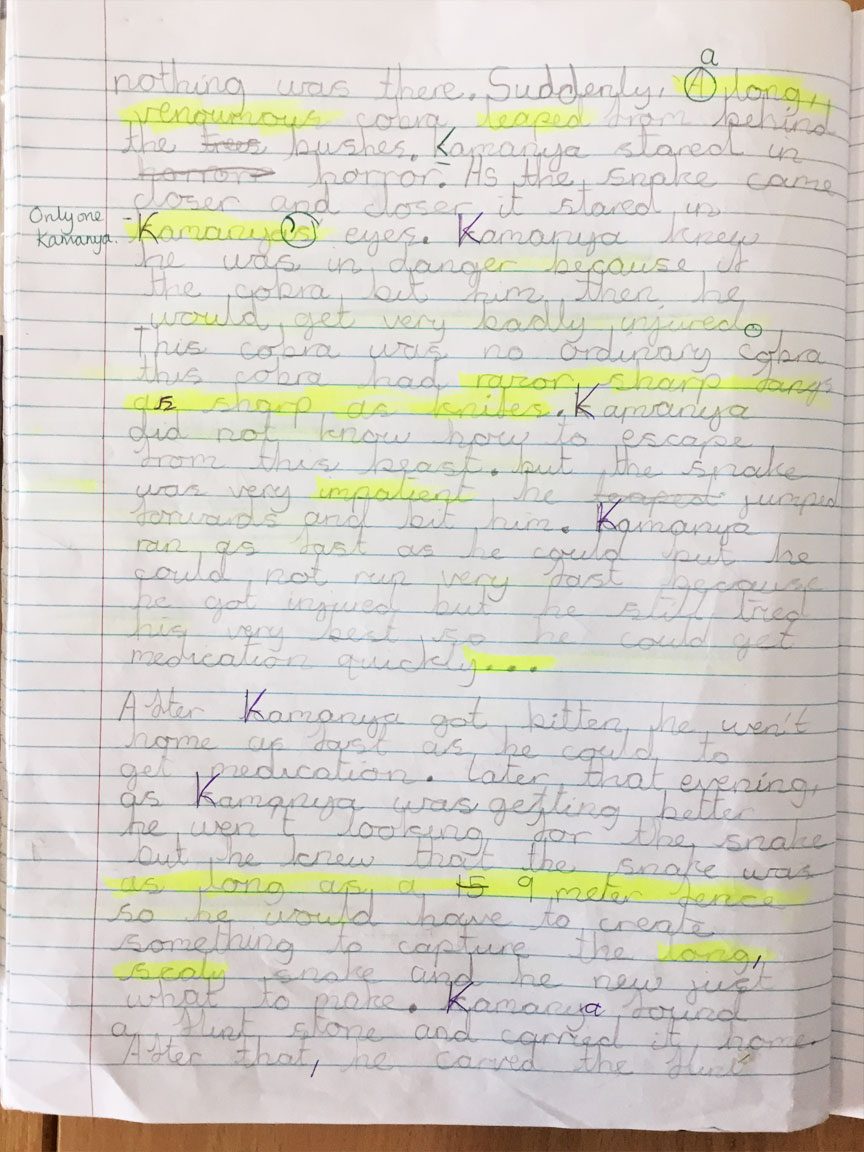 a
nothing was there. Suddenly, A long,
venoumous cobra leaped from behind
the trees bushes. Kamanya stared in
horror horror. As the snake came
closer and closer it stared in
Only one
Kamanya.
Kamanya's eyes. Kamanya knew
he was in danger because if
the cobra bit him then he
would get very badly injured.
This cobra was no ordinary cobra
this cobra had razor sharp fangs
as sharp as knifes. Kamanya
did not know how to escape
from this beast. but the snake
was very impatient he leaped jumped
forwards and bit him. Kamanya
ran as fast as he could but he
could not run very fast because
he got injured but he still tried
his very best so he could get
medication quickly...
After Kamanya got bitten he wen't
home as fast as he could to
get medication. Later that evening,
as Kamanya was getting better
he wen't looking for the snake
but he knew that the snake was
as long as a 15 9 meter fence
so he would have to create
something to capture the long,
scaly snake and he new just
what to make. Kamanya found
a flint stone and carried it home.
After that, he carved the flint